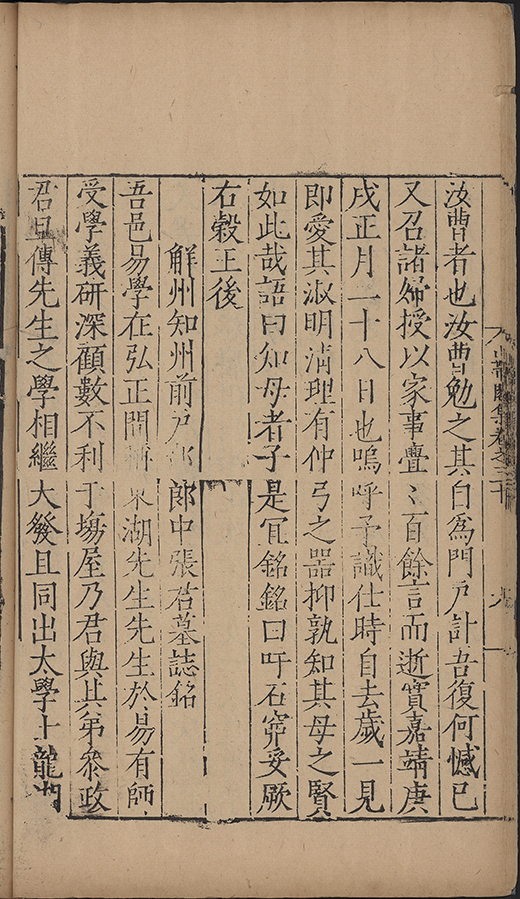 汝曹者也汝曹勉之其自為門戶計吾復何憾已
又召諸婦授以家事亹〻百餘言而逝實嘉靖庚
戌正月二十八日也嗚呼予識仕時自去歲一見
即愛其淑明清理有仲弓之器抑孰知其母之賢
如此哉語曰知母者子是冝銘銘曰吁石窾妥厥
右穀王後
解州知州前戶部郎中張君墓誌銘
吾邑易學在弘正間東湖先生先生於易有師
受學義研深顧數不利于塲屋乃君與其弟叅政
君旦傳先生之學相繼大發且同出太學士龍
集卷之二十